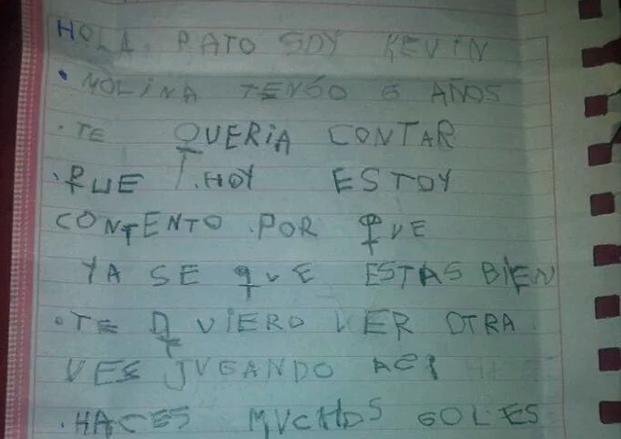 HOLA PATO SOY KEVIN
• MOLINA TENGO 6 AÑOS
• TE QUERIA CONTAR
• QUE HOY ESTOY
CONTENTO POR QUE
YA SE QUE ESTAS BIEN
• TE QUIERO VER OTRA
VES JUGANDO ACI
• HACES MUCHOS GOLES